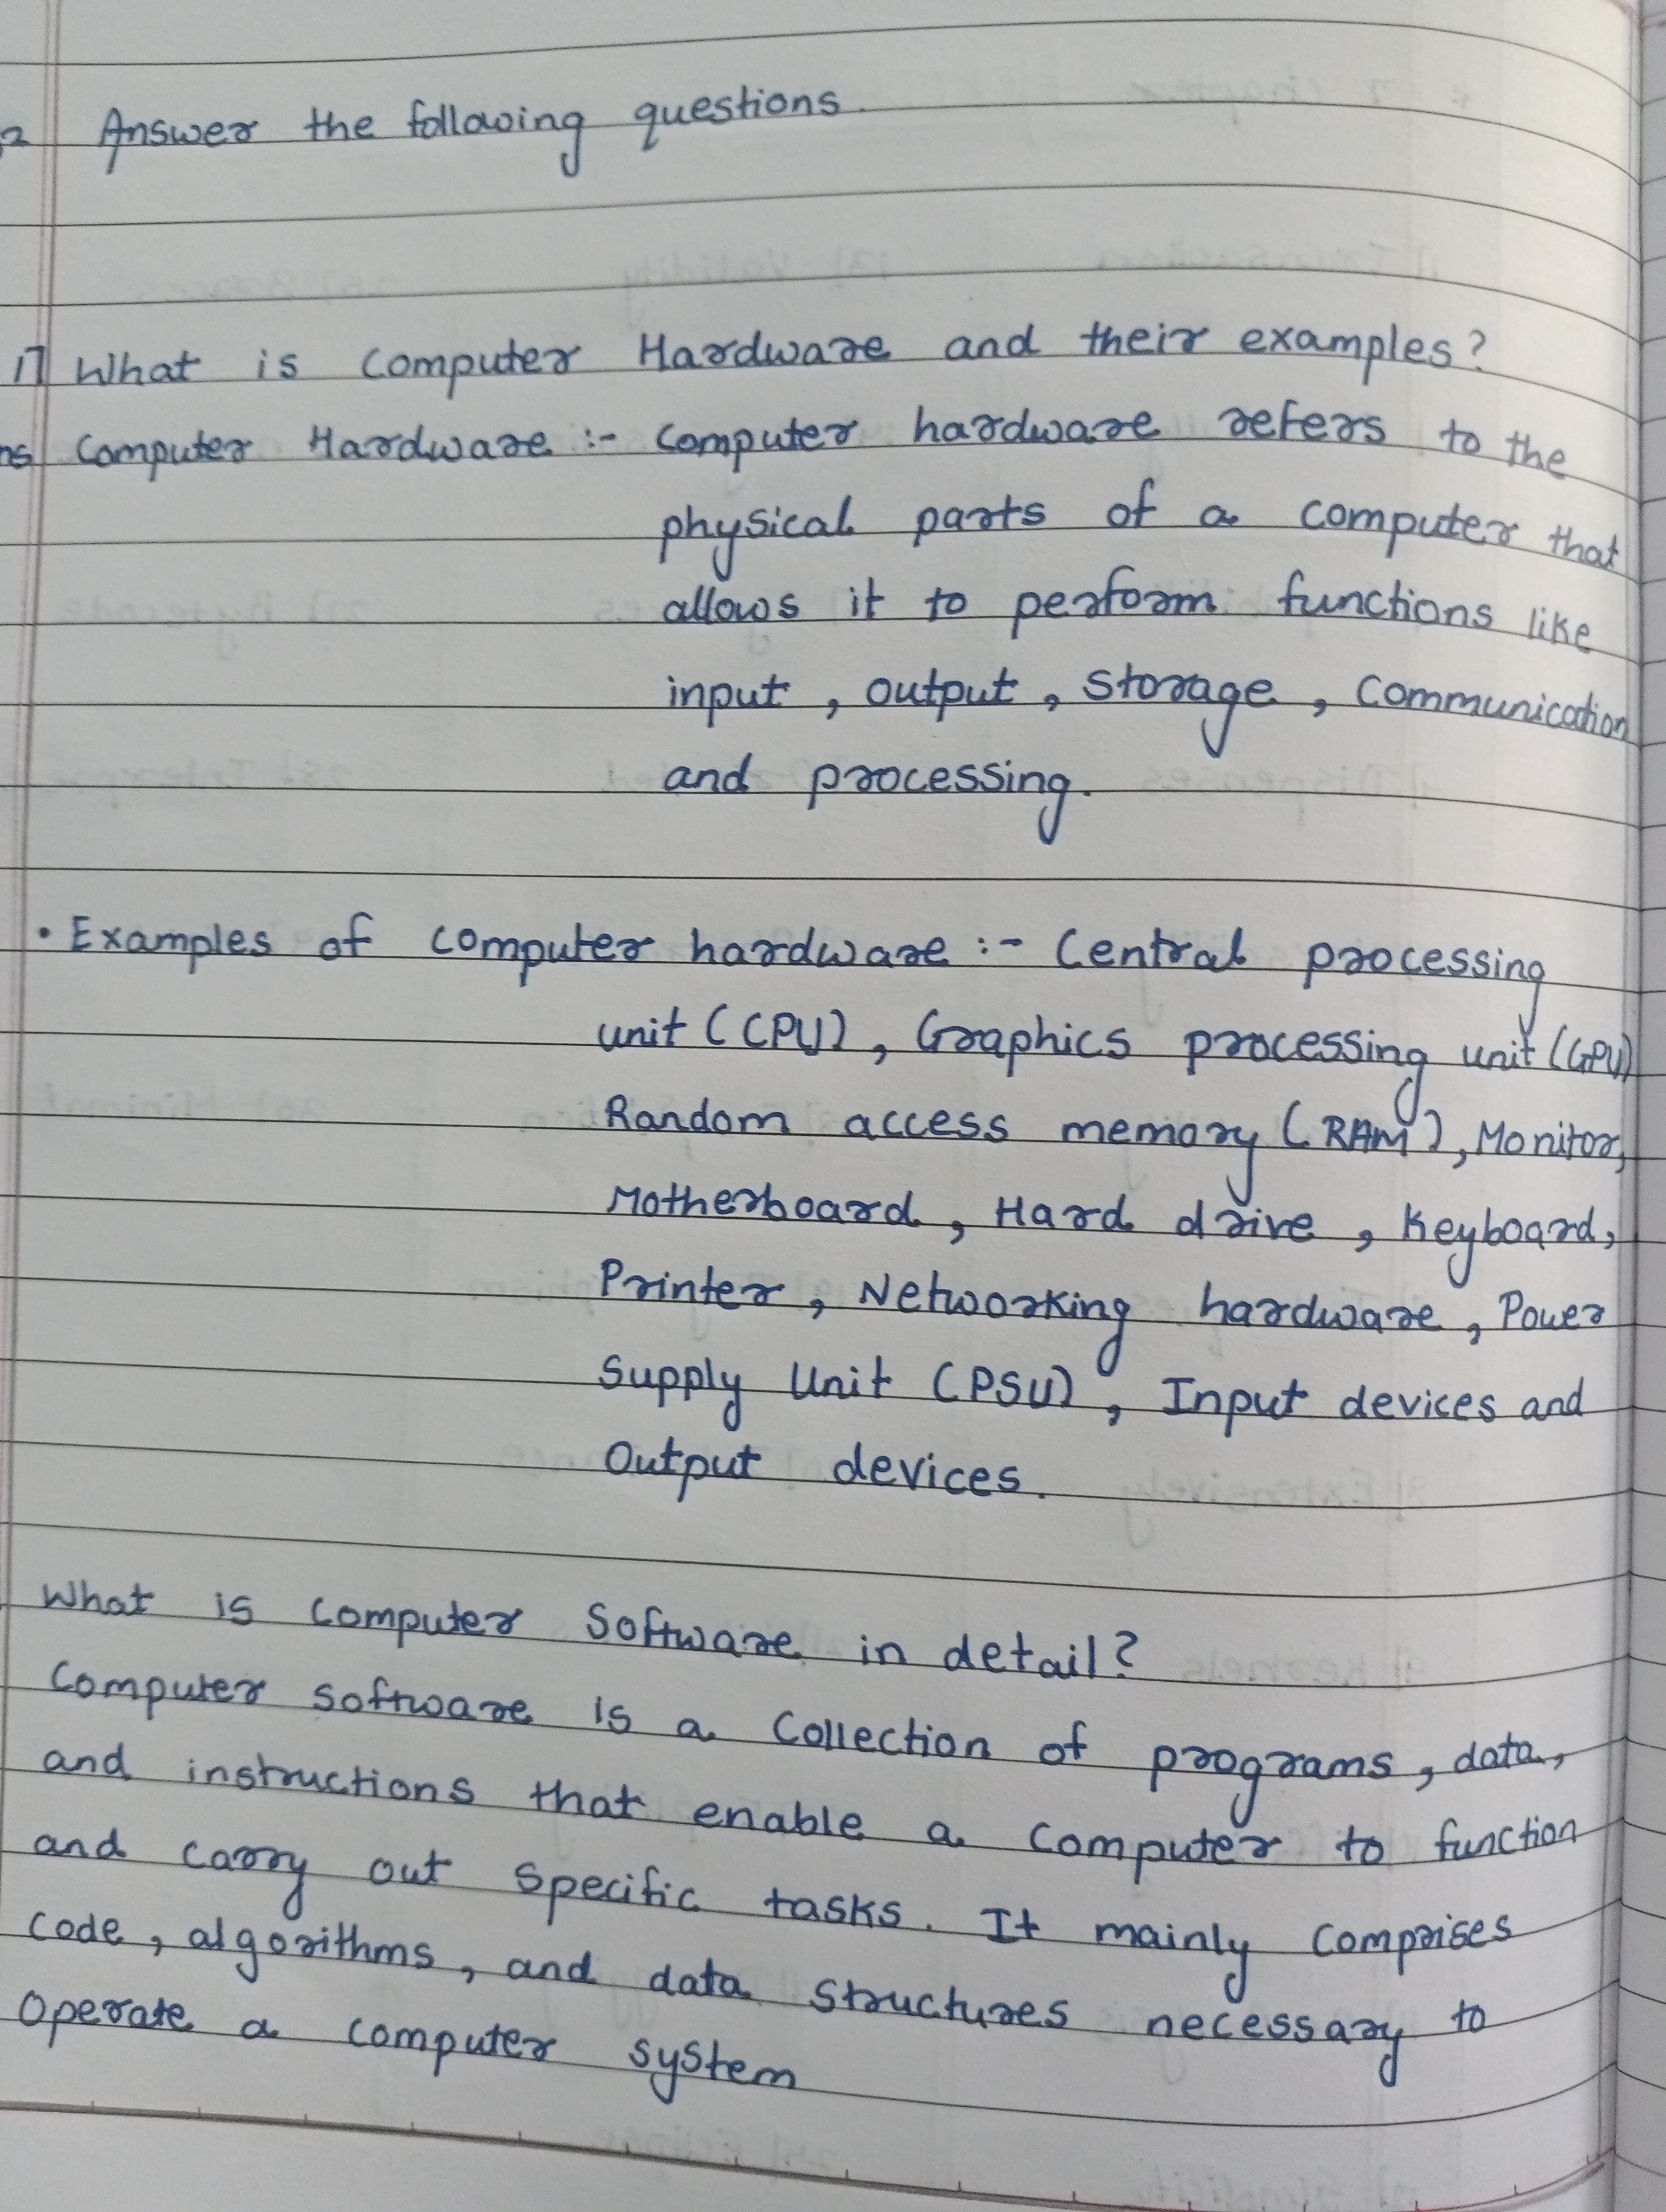 2 Answer the following questions.
1] What is computer Hardware and their examples?
ns Computer Hardware :- Computer hardware refers to the
physical parts of a computer that
allows it to perform functions like
input, output, storage, communication
and processing.
• Examples of computer hardware :- Central processing
unit (CPU), Graphics processing unit (GPU)
Random access memory (RAM), Monitor,
Motherboard, Hard drive, Keyboard,
Printer, Networking hardware, Power
Supply Unit (PSU), Input devices and
Output devices.
What is computer Software in detail?
Computer software is a collection of programs, data,
and instructions that enable a computer to function
and carry out specific tasks. It mainly comprises
code, algorithms, and data structures necessary to
operate a computer system